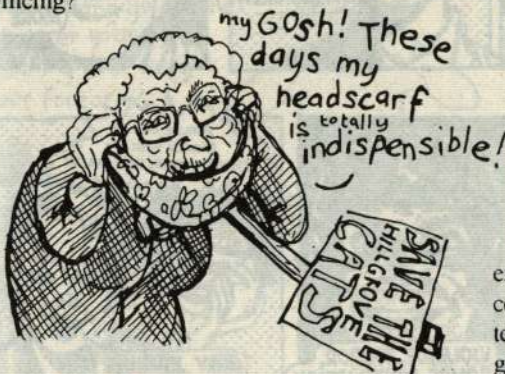 my GOsh! These
days my
headscarf
is totally
indispensible!
SAVE THE
HILLGROVE
CATS
e
co
to
g